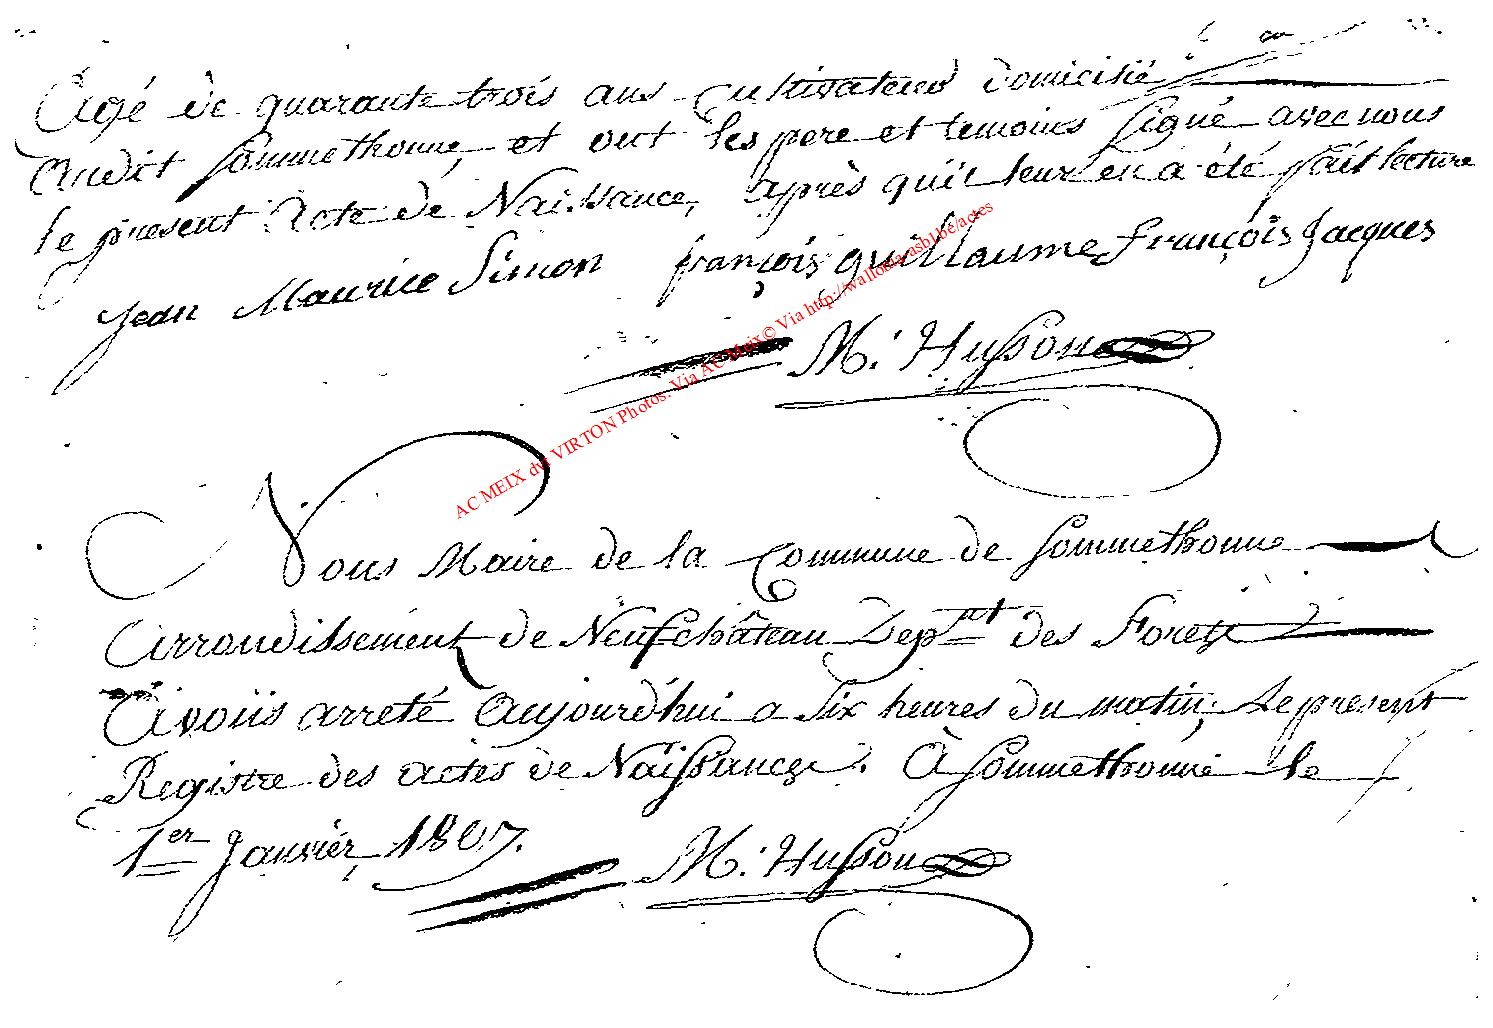 Agé de quarante trois ans cultivateur domicilié
Audit Sommethonne, et ont les pere et temoins signé avec nous
le present Acte de Naissance, après qu'il leur en a été fait lecture
Jean Maurice Simon françois guillaume françois Jacques
M. Husson
AC MEIX dvt VIRTON Photos. Via AC Meix© Via http://wallonia-asbl.be/actes
Nous Maire de la Commune de Sommethonne
Arrondissement de Neufchâteau Dep.mt des Forets
Avons arreté Aujourd'hui a six heures du matin, Le present
Registre des actes de Naissances. À Sommethonne le
1er Janvier, 1807.
M. Husson